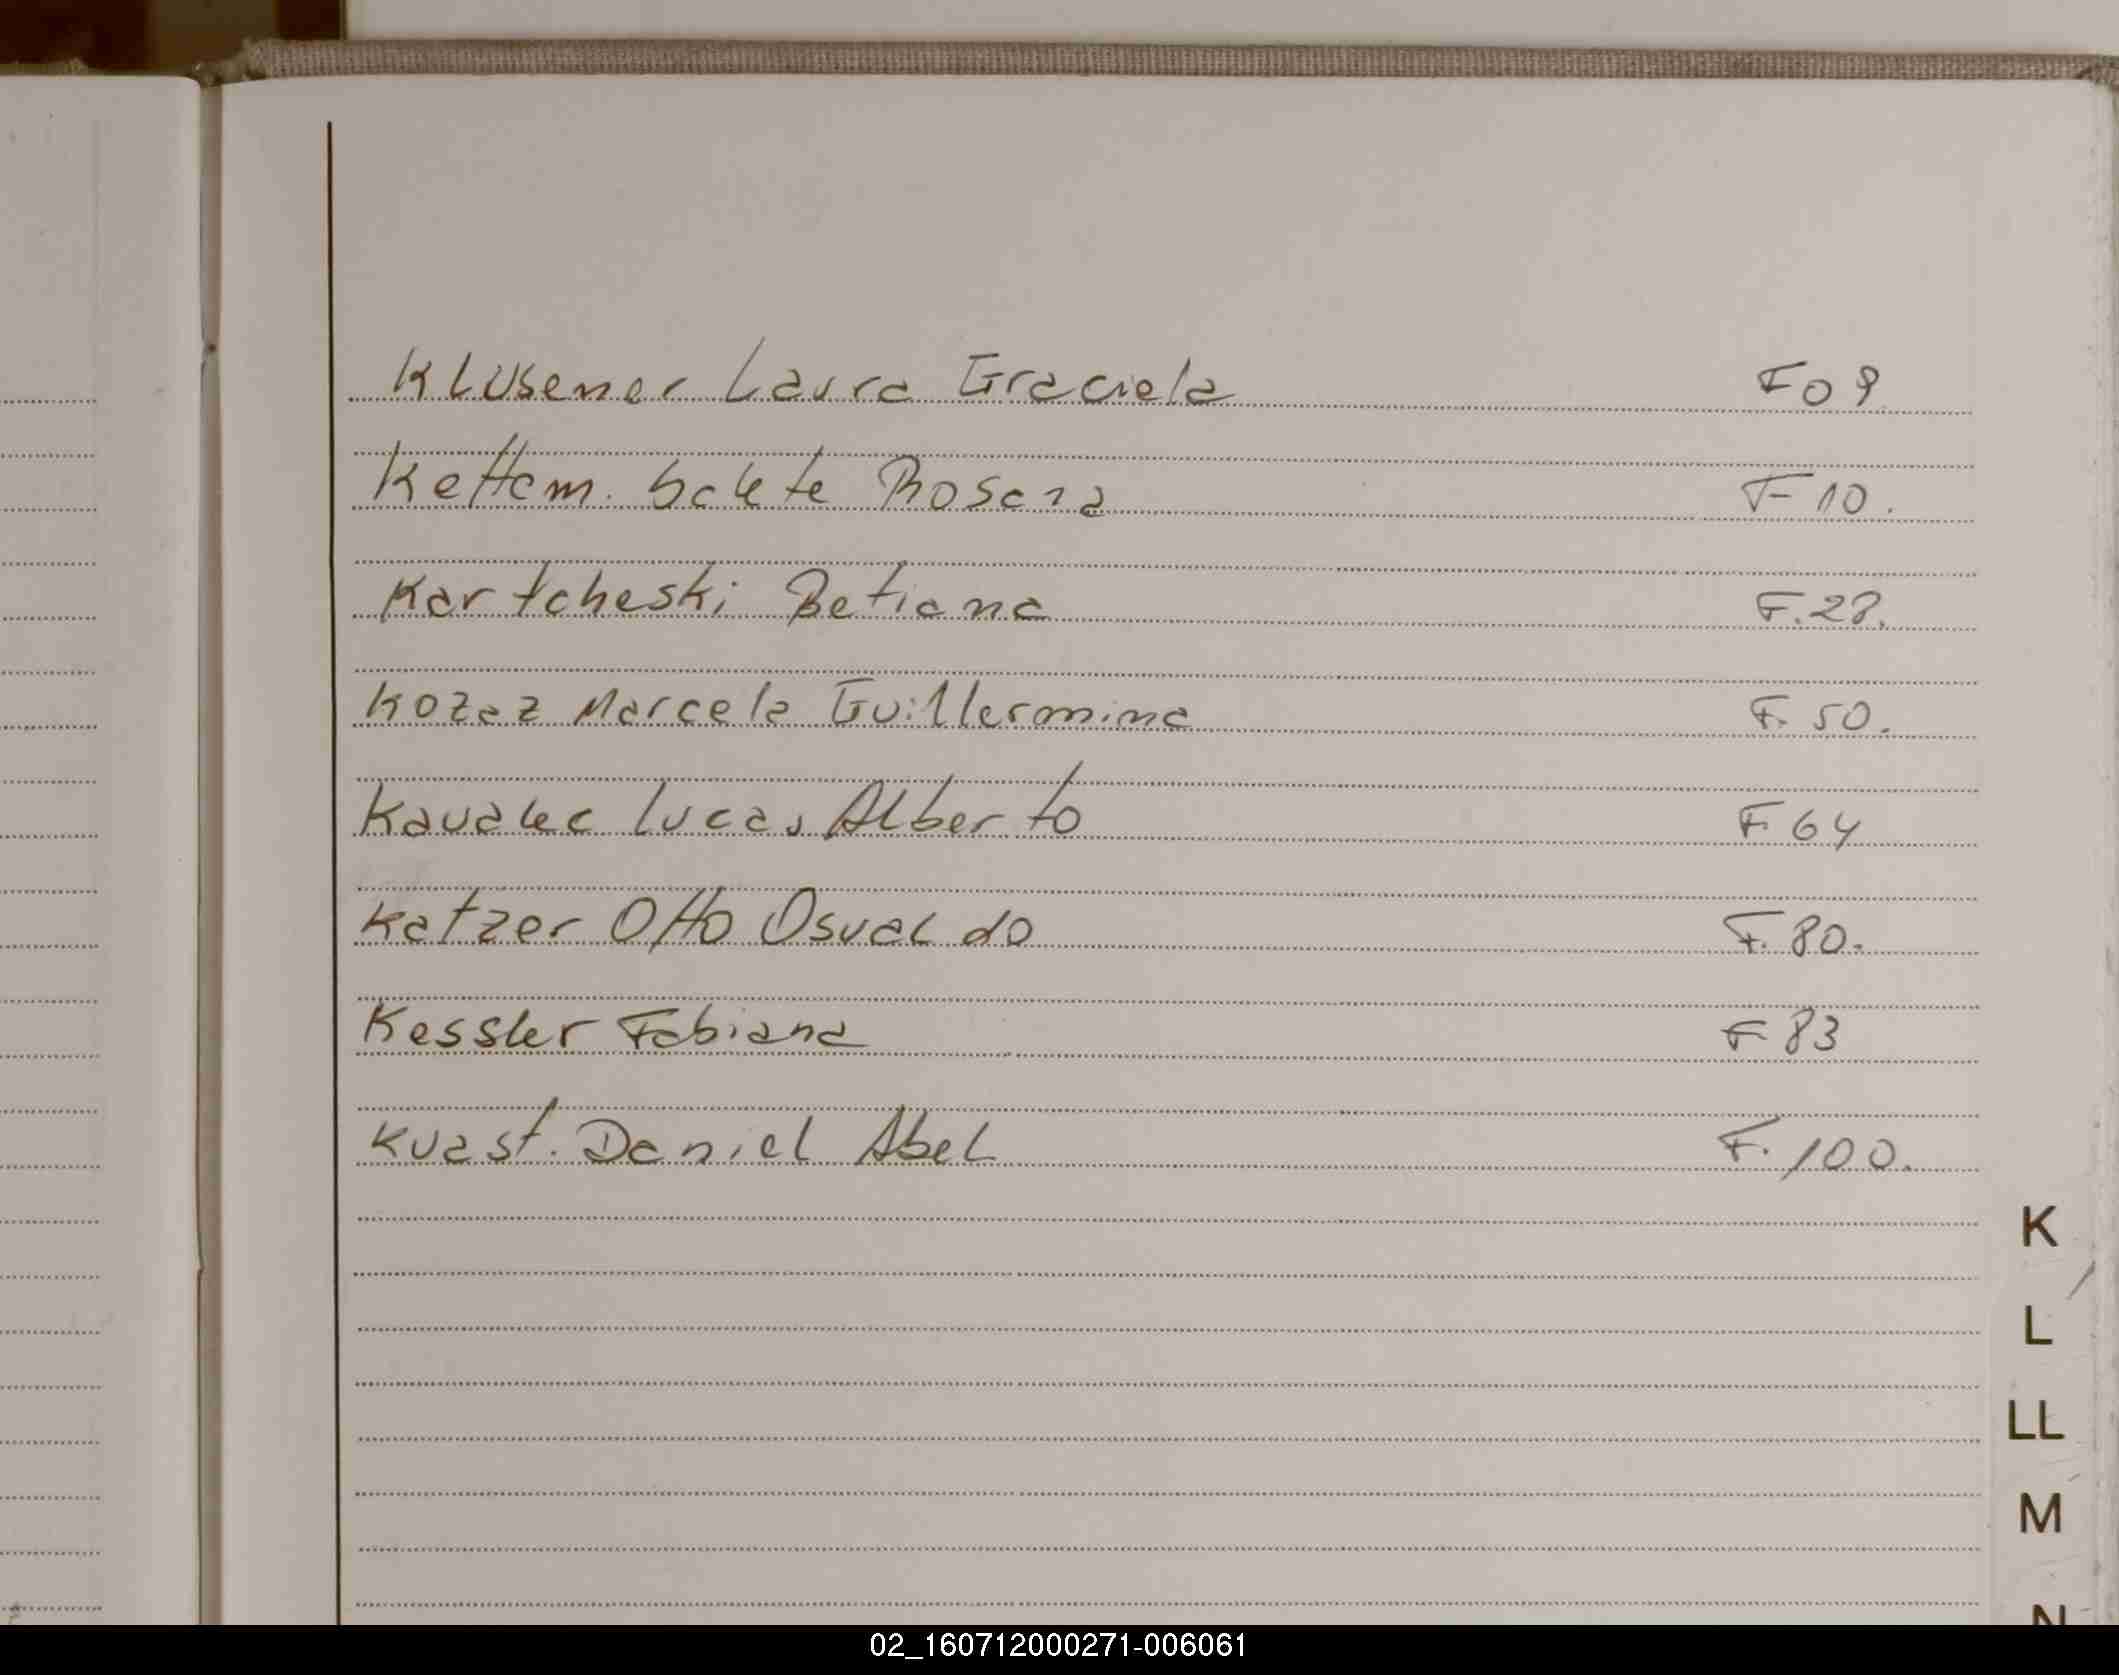 Klusener Laura Graciela F 09
Kettem. Salete Rosana F 10.
Kartcheski Betiana F. 28.
Kozaz Marcela Guillermina F. 50.
Kavalec Lucas Alberto F 64
Katzer Otto Osvaldo F. 80.
Kessler Fabiana F 83
Kuast. Daniel Abel F. 100.
K
L
LL
M
N
02_160712000271-006061